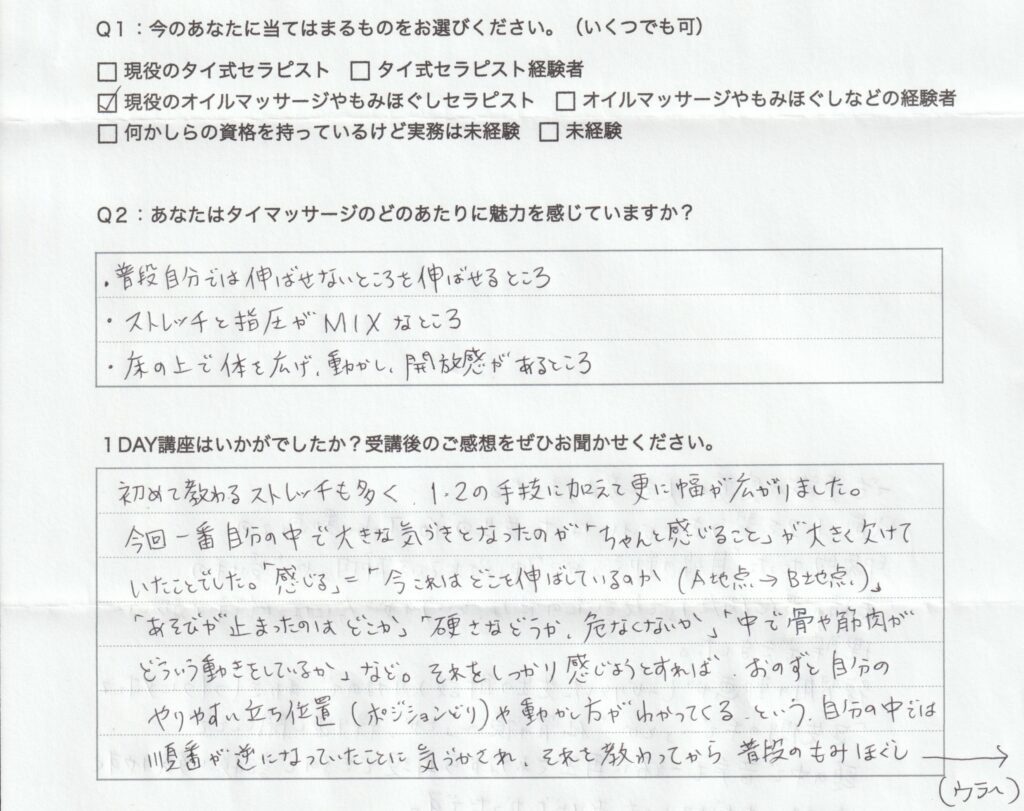 Q1：今のあなたに当てはまるものをお選びください。（いくつでも可）
□ 現役のタイ式セラピスト □ タイ式セラピスト経験者
☑ 現役のオイルマッサージやもみほぐしセラピスト □ オイルマッサージやもみほぐしなどの経験者
□ 何かしらの資格を持っているけど実務は未経験 □ 未経験
Q2：あなたはタイマッサージのどのあたりに魅力を感じていますか？
・普段自分では伸ばせないところを伸ばせるところ
・ストレッチと指圧がMIXなところ
・床の上で体を広げ、動かし、開放感があるところ
1DAY講座はいかがでしたか？受講後のご感想をぜひお聞かせください。
初めて教わるストレッチも多く、1.2の手技に加えて更に幅が広がりました。
今回一番自分の中で大きな気づきとなったのが「ちゃんと感じること」が大きく欠けて
いたことでした。「感じる」=「今これはどこを伸ばしているのか（A地点→B地点）」
「あそびが止まったのはどこか」「硬さなどうか、危なくないか」「中で骨や筋肉が
どういう動きをしているか」など。それをしっかり感じようとすれば、おのずと自分の
やりやすい立ち位置（ポジションどり）や動かし方がわかってくる、という、自分の中では
順番が逆になっていたことに気づかされ、それを教わってから普段のもみほぐし →
（ウラへ）